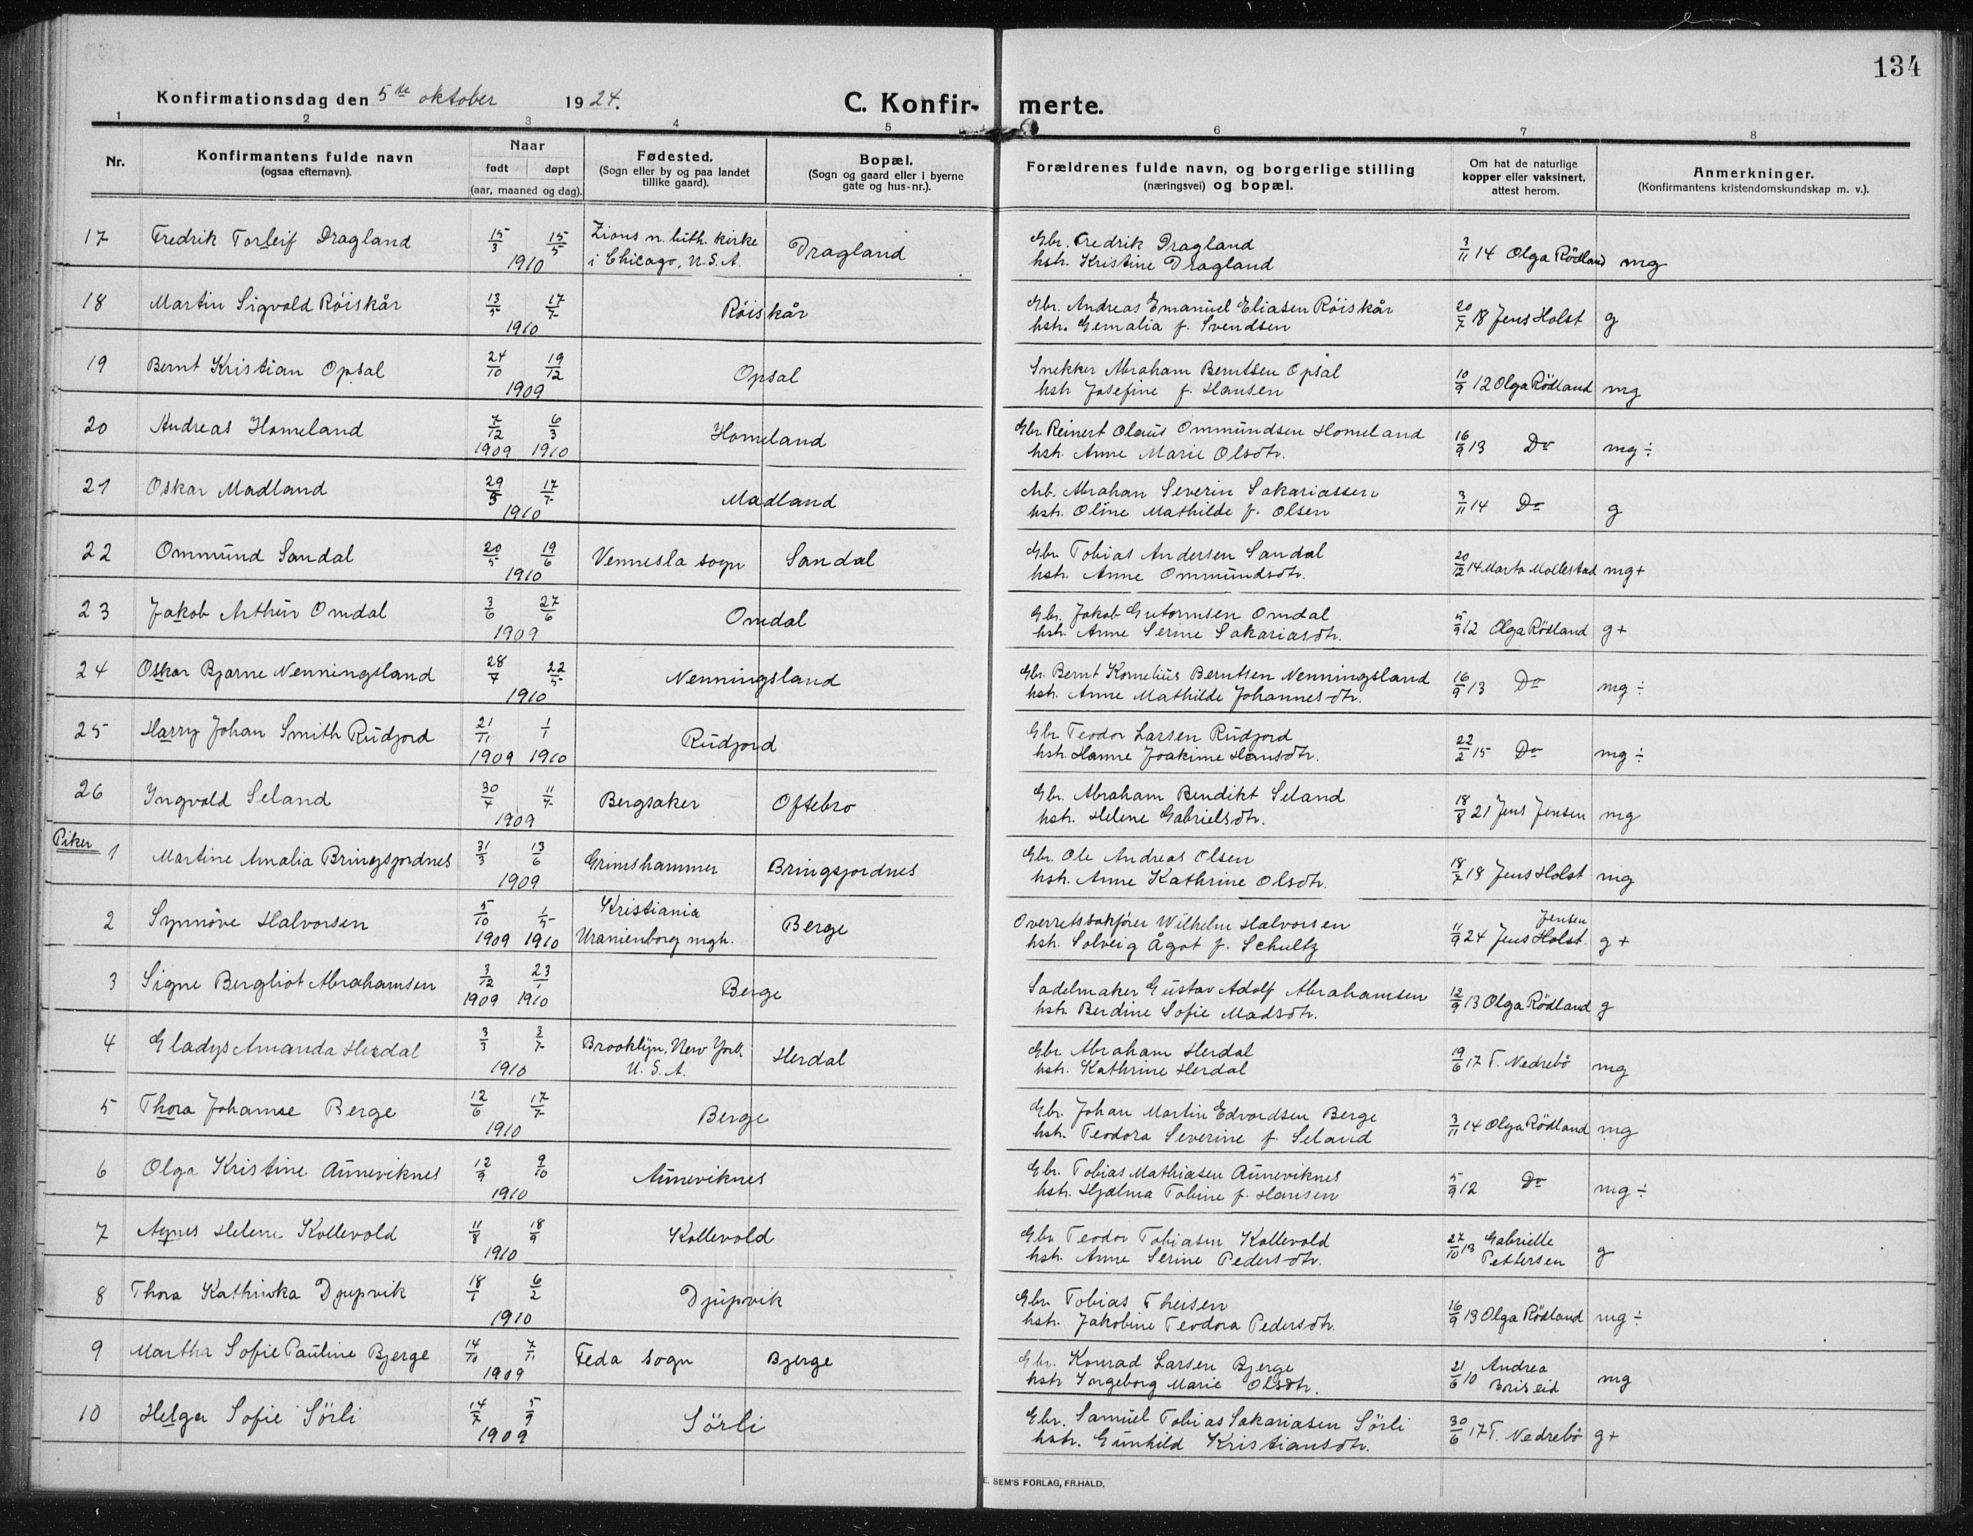 134
Konfirmationsdag den 5te oktober 1924.
C. Konfir- merte.
1 2 3 4 5 6 7 8
Nr.
Konfirmantens fulde navn
(ogsaa efternavn).
Naar
født døpt
(aar, maaned og dag).
Fødested.
(Sogn eller by og paa landet
tillike gaard).
Bopæl.
(Sogn og gaard eller i byerne
gate og hus-nr.).
Forældrenes fulde navn, og borgerlige stilling
(næringsvei) og bopæl.
Om hat de naturlige
kopper eller vaksinert,
attest herom.
Anmerkninger.
(Konfirmantens kristendomskundskap m. v.).
17 Fredrik Torleif Dragland 15/3 15/5 1910 Zions n. luth. kirke
i Chicago, U.S.A. Dragland
Gbr. Fredrik Dragland
hstr. Kristine Dragland
3/11 14 Olga Rödland mg
18 Martin Sigvald Röiskår 13/5 17/7 1910 Röiskår
Gbr. Andreas Emanuel Eliasen Röiskår
hstr. Gemalia f. Svendsen
20/7 18 Jens Holst g
19 Bernt Kristian Opsal 24/10 19/12 1909 Opsal
Snekker Abraham Berntsen Opsal
hstr. Josefine f. Hansen
10/9 12 Olga Rödland mg
20 Andreas Homeland 7/12 6/3 1909 1910 Homeland
Gbr. Reinert Olaus Ommundsen Homeland
hstr. Anne Marie Olsdtr.
16/9 13 Do mg ÷
21 Oskar Madland 29/5 17/7 1910 Madland
Arb. Abraham Severin Sakariassen
hstr. Oline Mathilde f. Olsen
3/11 14 Do g
22 Ommund Sandal 20/5 19/6 1910 Vennesla sogn Sandal
Gbr. Tobias Andersen Sandal
hstr. Anne Ommundsdtr.
20/12 14 Marta Mollestad mg+
23 Jakob Arthur Omdal 3/6 27/6 1909 Omdal
Gbr. Jakob Gutormsen Omdal
hstr. Anne Serine Sakariasdtr.
5/9 12 Olga Rödland g+
24 Oskar Bjarne Nenningsland 28/7 22/5 1910 Nenningsland
Gbr. Bernt Kornelius Berntsen Nenningsland
hstr. Anne Mathilde Johannesdtr.
16/9 13 Do mg ÷
25 Harry Johan Smith Rudjord 21/11 1/1 1909 1910 Rudjord
Gbr. Teodor Larsen Rudjord
hstr. Hanne Joakime Hansdtr.
22/2 15 Do mg ÷
26 Ingvald Seland 30/4 11/7 1909 Bergsaker Oftebro
Gbr. Abraham Bendikt Seland
hstr. Helene Gabrielsdtr.
18/8 21 Jens Jensen mg
Piker
1 Martine Amalia Bringsjordnes 31/3 13/6 1909 Grimshammer Bringsjordnes
Gbr. Ole Andreas Olsen
hstr. Anne Kathrine Olsdtr.
18/7 18 Jens Holst mg
2 Synnöve Halvorsen 5/10 1/5 1909 1910 Kristiania
Uranienborg mgh. Berge
Overretssakfører Wilhelm Halvorsen
hstr. Solveig Ågot f. Schultz
11/9 24 Jens Jensen Holst g+
3 Signe Bergliot Abrahamsen 3/12 23/1 1909 1910 Berge
Sadelmaker Gustav Adolf Abrahamsen
hstr. Berdine Sofie Madsdtr.
12/9 13 Olga Rödland g
4 Gladys Amanda Herdal 3/3 3/7 1910 Brooklyn, New York
U.S.A. Herdal
Gbr. Abraham Herdal
hstr. Kathrine Herdal
19/6 17 T. Nedrebö mg
5 Thora Johanne Berge 12/6 17/7 1910 Berge
Gbr. Johan Martin Edvardsen Berge
hstr. Teodora Severine f. Seland
3/11 14 Olga Rödland mg
6 Olga Kristine Auneviknes 12/9 9/10 1910 Auneviknes
Gbr. Tobias Mathiasen Auneviknes
hstr. Hjalma Tobine f. Hansen
5/9 12 Do mg ÷
7 Agnes Helene Kollevold 11/8 18/9 1910 Kollevold
Gbr. Teodor Tobiasen Kollevold
hstr. Anne Serine Pedersdtr.
27/10 13 Gabrielle
Pettersen g
8 Thora Kathinka Djupvik 18/1 6/2 1910 Djupvik
Gbr. Tobias Theisen
hstr. Jakobine Teodora Pedersdtr.
16/9 13 Olga Rödland mg ÷
9 Martha Sofie Pauline Bjerge 14/10 7/11 1909 Feda sogn Bjerge
Gbr. Konrad Larsen Bjerge
hstr. Ingeborg Marie Olsdtr.
21/6 10 Andrea
Briseid mg
10 Helga Sofie Sörli 14/7 5/9 1909 Sörli
Gbr. Samuel Tobias Sakariasen Sörli
hstr. Gunhild Kristiansdtr.
30/6 17 T. Nedrebö g+
E. SEM'S FORLAG, FR.HALD.